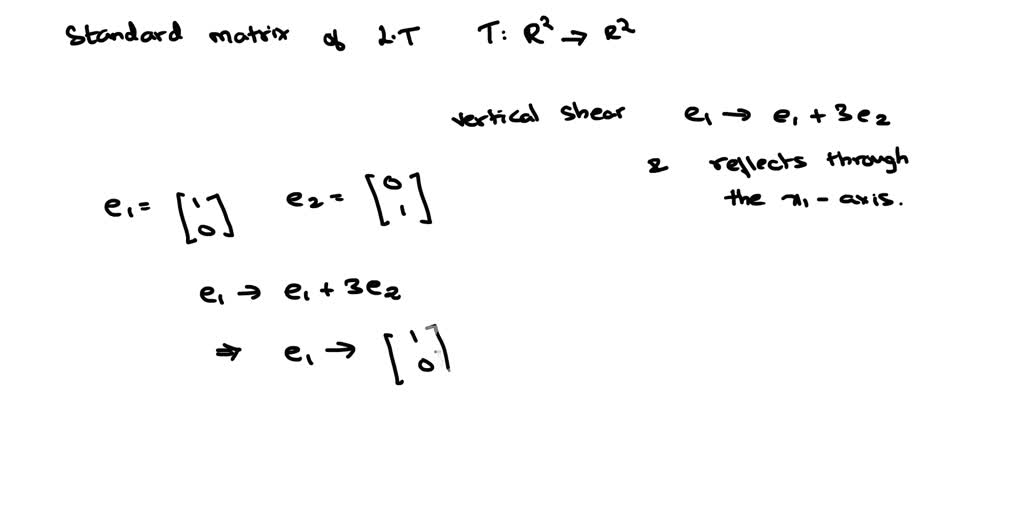 Standard matrix of L.T T: R² → R²
vertical shear e₁ → e₁ + 3e₂
& reflects through
the x₁ - axis.
e₁ = [1 0] e₂ = [0 1]
e₁ → e₁ + 3e₂
⇒ e₁ → [1 0]